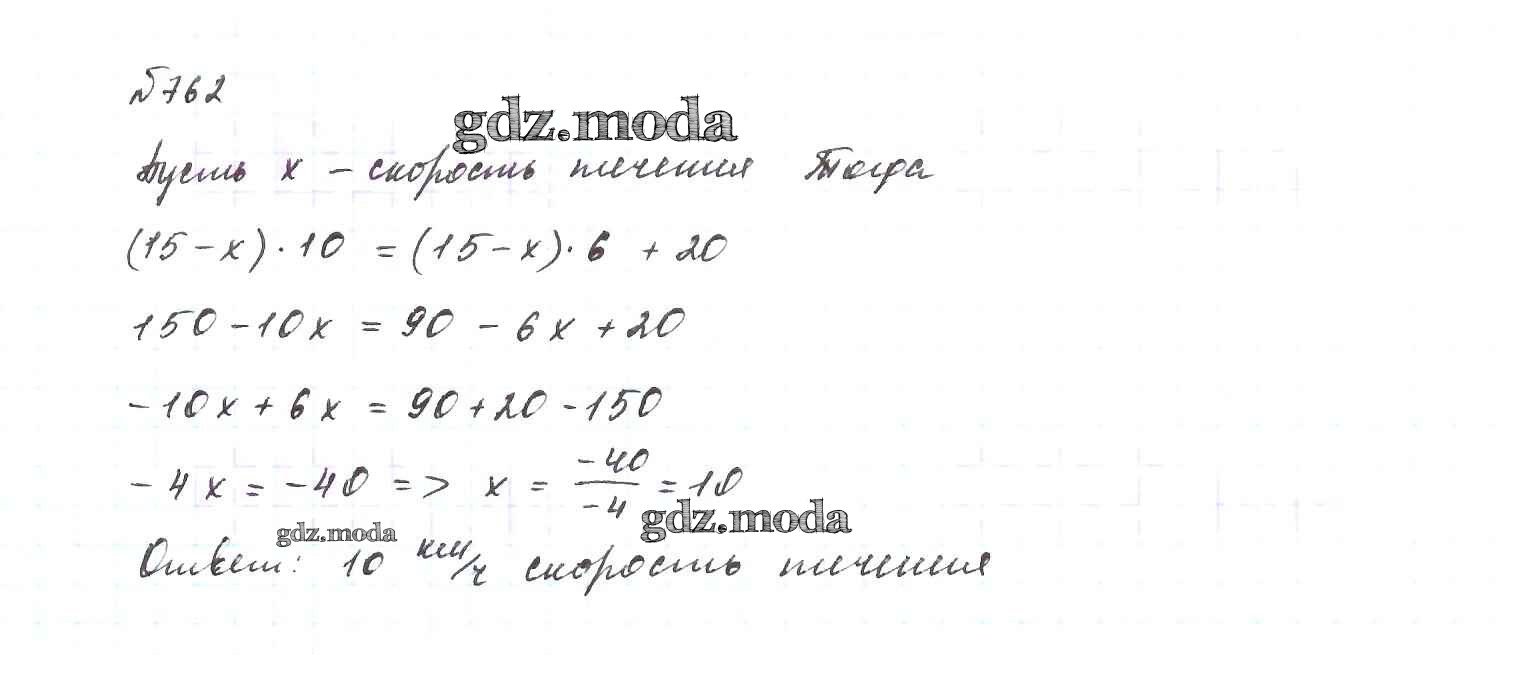 №762
gdz.moda
Пусть x – скорость течения Тогда
(15 – x) · 10 = (15 – x) · 6 + 20
150 – 10x = 90 – 6x + 20
– 10x + 6x = 90 + 20 – 150
– 4x = –40 => x = –40/–4 = 10
gdz.moda gdz.moda
Ответ: 10 км/ч скорость течения